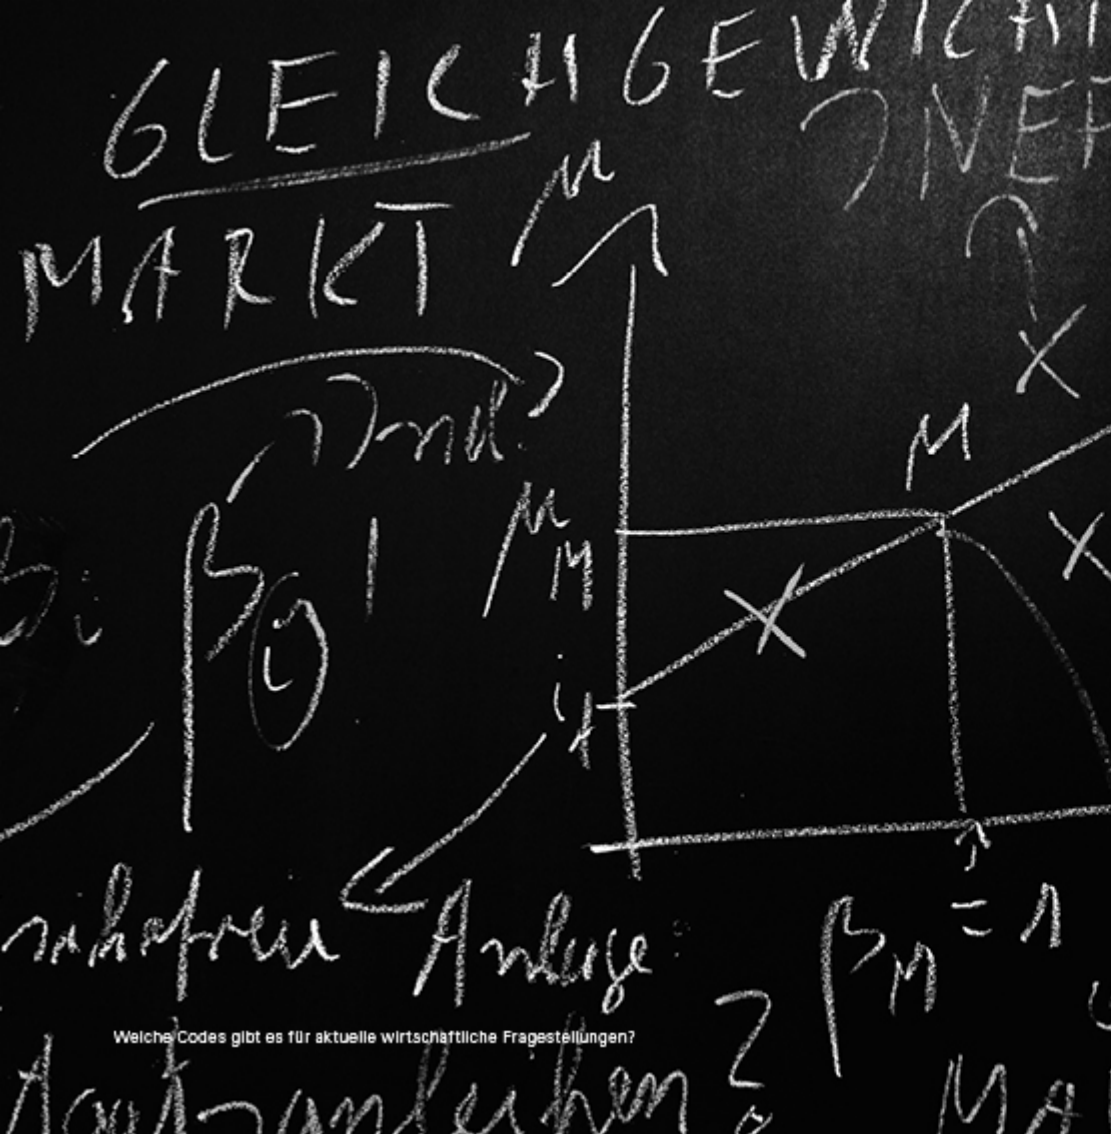 GLEICHGEWICHT
MARKT
μ
X
ind.
M
βi
βi
μM
X
X
if
risikofreie Anlage
βM = 1
Welche Codes gibt es für aktuelle wirtschaftliche Fragestellungen?
Staatsanleihen ?